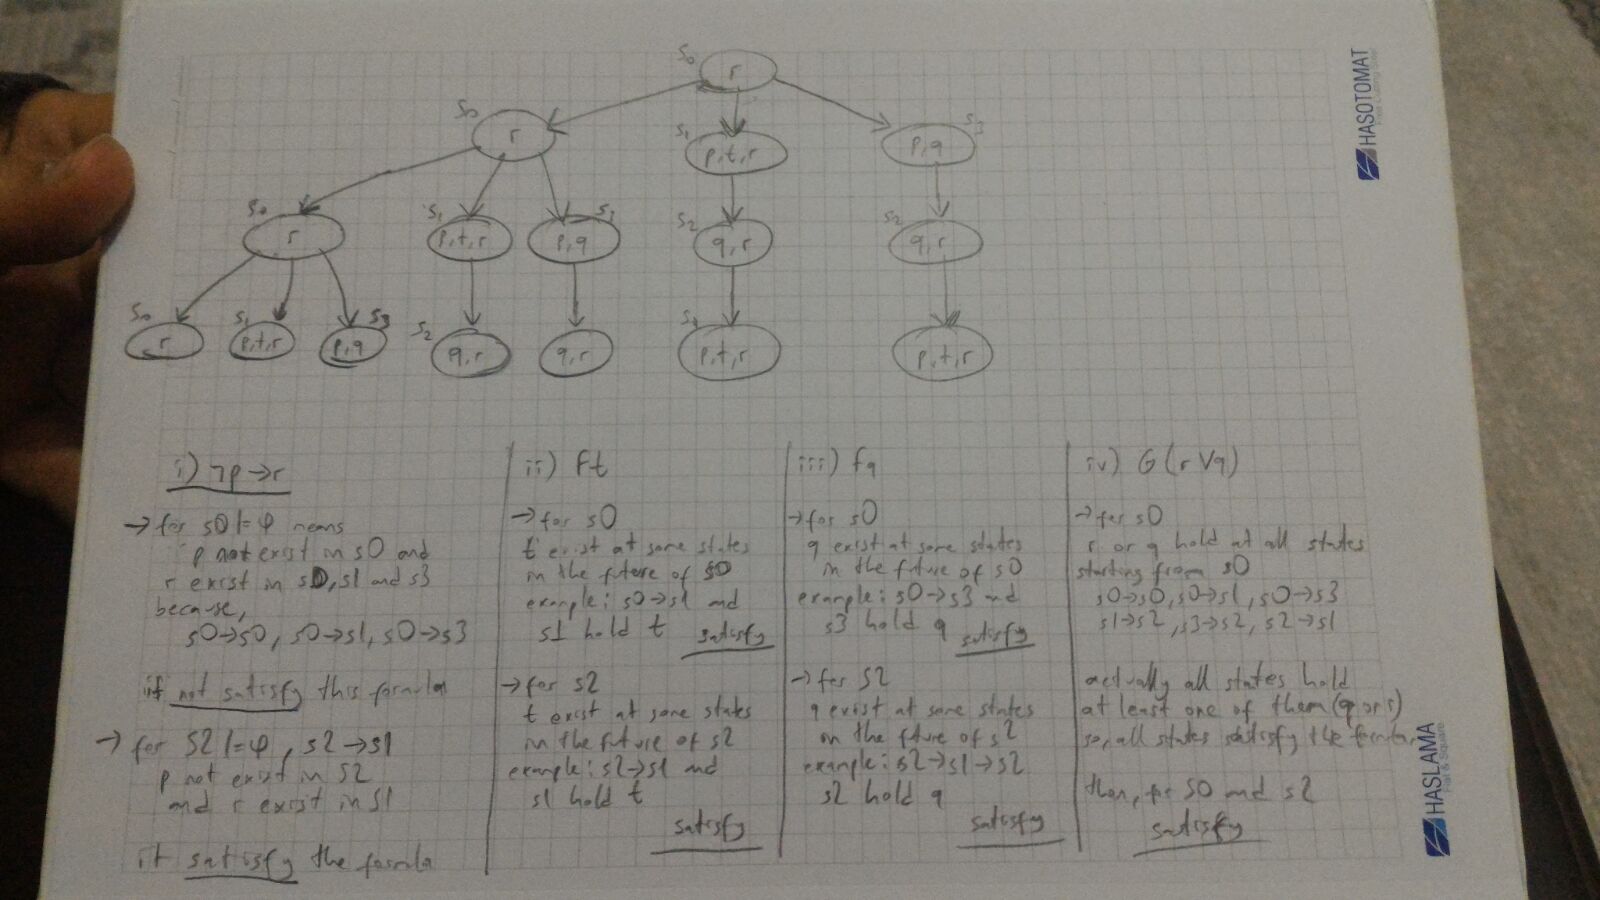 s0
r
s0
r
s1
p,t,r
s3
p,q
s0
r
s1
p,t,r
s3
p,q
s2
q,r
s2
q,r
s0
r
s1
p,t,r
s3
p,q
s2
q,r
q,r
s1
p,t,r
p,t,r
i) ¬p→r
→ for s0 |= φ means
p not exist in s0 and
r exist in s0, s1 and s3
because,
s0→s0, s0→s1, s0→s3
it not satisfy this formula
→ for s2 |= φ, s2→s1
p not exist in s2
and r exist in s1
it satisfy the formula
ii) Ft
→ for s0
t exist at some states
in the future of s0
example: s0→s1 and
s1 hold t satisfy
→ for s2
t exist at some states
in the future of s2
example: s2→s1 and
s1 hold t
satisfy
iii) Fq
→ for s0
q exist at some states
in the future of s0
example: s0→s3 and
s3 hold q satisfy
→ for s2
q exist at some states
on the future of s2
example: s2→s1→s2
s2 hold q
satisfy
iv) G(r∨q)
→ for s0
r or q hold at all states
starting from s0
s0→s0, s0→s1, s0→s3
s1→s2, s3→s2, s2→s1
actually all states hold
at least one of them (q or r)
so, all states satisfy the formula
then, for s0 and s2
satisfy
HASOTOMAT
HASLAMA
Flat & Square